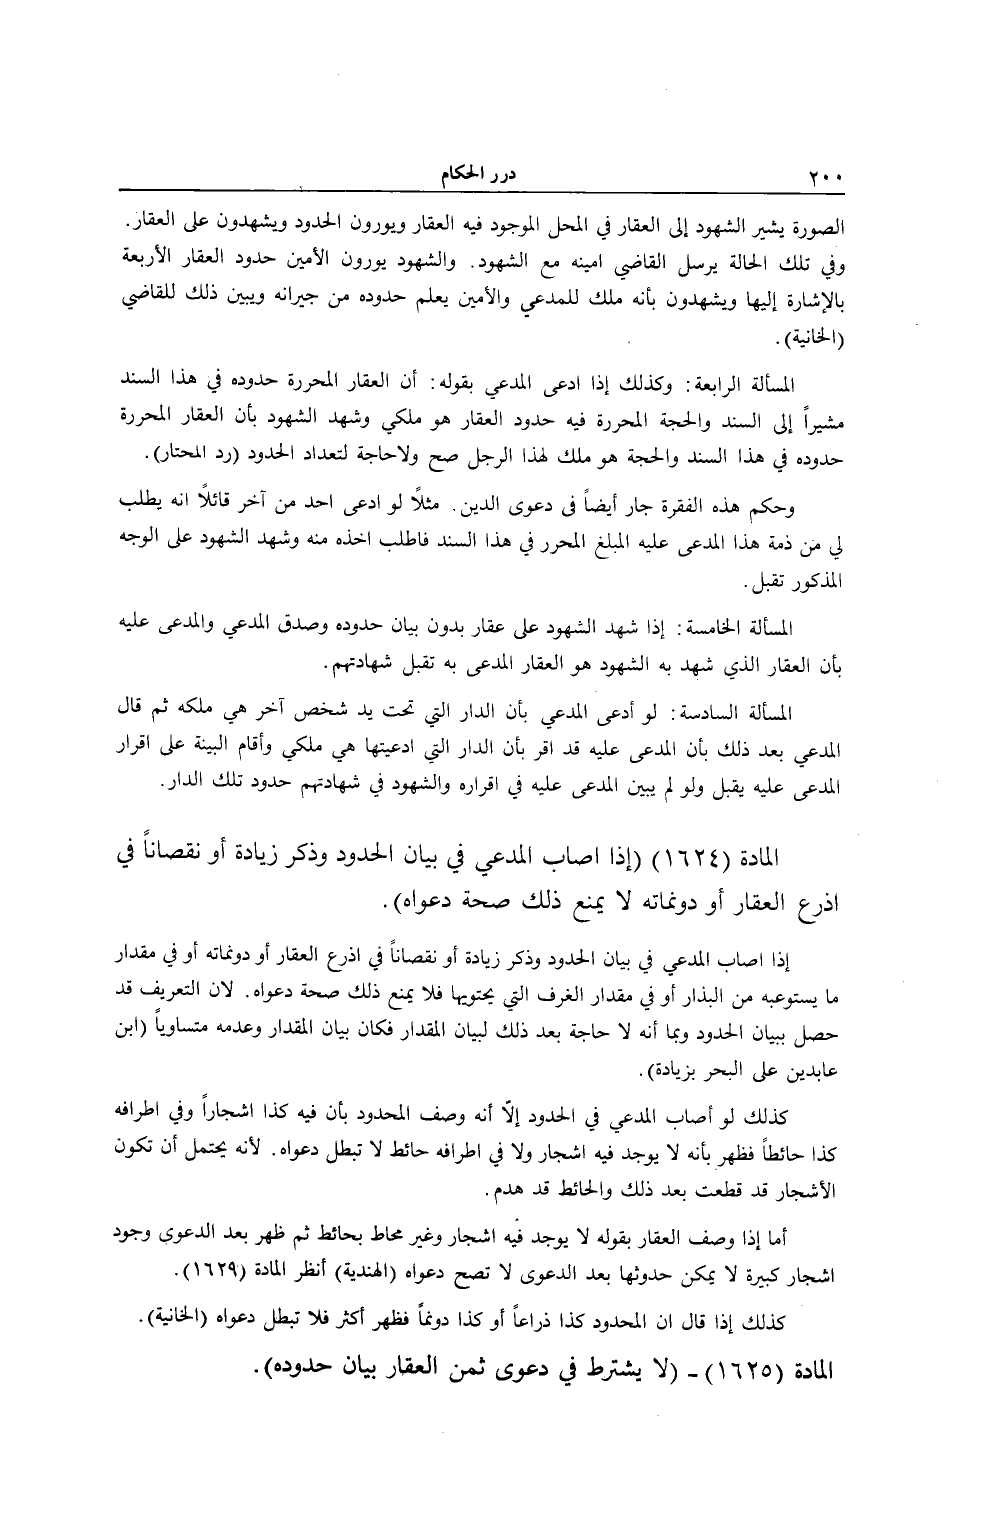 ٢٠٠ درر الحكام
الصورة يشير الشهود إلى العقار في المحل الموجود فيه العقار ويورون الحدود ويشهدون على العقار.
وفي تلك الحالة يرسل القاضي امينه مع الشهود. والشهود يورون الأمين حدود العقار الأربعة
بالإشارة إليها ويشهدون بأنه ملك للمدعي والأمين يعلم حدوده من جيرانه ويبين ذلك للقاضي
(الخانية).
المسألة الرابعة: وكذلك إذا ادعى المدعي بقوله: أن العقار المحررة حدوده في هذا السند
مشيراً إلى السند والحجة المحررة فيه حدود العقار هو ملكي وشهد الشهود بأن العقار المحررة
حدوده في هذا السند والحجة هو ملك لهذا الرجل صح ولاحاجة لتعداد الحدود (رد المحتار).
وحكم هذه الفقرة جار أيضاً فى دعوى الدين. مثلًا لو ادعى احد من آخر قائلًا انه يطلب
لي من ذمة هذا المدعى عليه المبلغ المحرر في هذا السند فاطلب اخذه منه وشهد الشهود على الوجه
المذكور تقبل.
المسألة الخامسة: إذا شهد الشهود على عقار بدون بيان حدوده وصدق المدعي والمدعى عليه
بأن العقار الذي شهد به الشهود هو العقار المدعى به تقبل شهادتهم.
المسألة السادسة: لو أدعى المدعي بأن الدار التي تحت يد شخص آخر هي ملكه ثم قال
المدعي بعد ذلك بأن المدعى عليه قد اقر بأن الدار التي ادعيتها هي ملكي وأقام البينة على اقرار
المدعى عليه يقبل ولو لم يبين المدعى عليه في اقراره والشهود في شهادتهم حدود تلك الدار.
المادة (١٦٢٤) (إذا اصاب المدعي في بيان الحدود وذكر زيادة أو نقصاناً في
اذرع العقار أو دونماته لا يمنع ذلك صحة دعواه).
إذا اصاب المدعي في بيان الحدود وذكر زيادة أو نقصاناً في اذرع العقار أو دونماته أو في مقدار
ما يستوعبه من البذار أو في مقدار الغرف التي يحتويها فلا يمنع ذلك صحة دعواه. لان التعريف قد
حصل ببيان الحدود وبما أنه لا حاجة بعد ذلك لبيان المقدار فكان بيان المقدار وعدمه متساوياً (ابن
عابدين على البحر بزيادة).
كذلك لو أصاب المدعي في الحدود إلّا أنه وصف المحدود بأن فيه كذا اشجاراً وفي اطرافه
كذا حائطاً فظهر بأنه لا يوجد فيه اشجار ولا في اطرافه حائط لا تبطل دعواه. لأنه يحتمل أن تكون
الأشجار قد قطعت بعد ذلك والحائط قد هدم.
أما إذا وصف العقار بقوله لا يوجد فيه اشجار وغير محاط بحائط ثم ظهر بعد الدعوى وجود
اشجار كبيرة لا يمكن حدوثها بعد الدعوى لا تصح دعواه (الهندية) أنظر المادة (١٦٢٩).
كذلك إذا قال ان المحدود كذا ذراعاً أو كذا دونماً فظهر أكثر فلا تبطل دعواه (الخانية).
المادة (١٦٢٥) ـ (لا يشترط في دعوى ثمن العقار بيان حدوده).